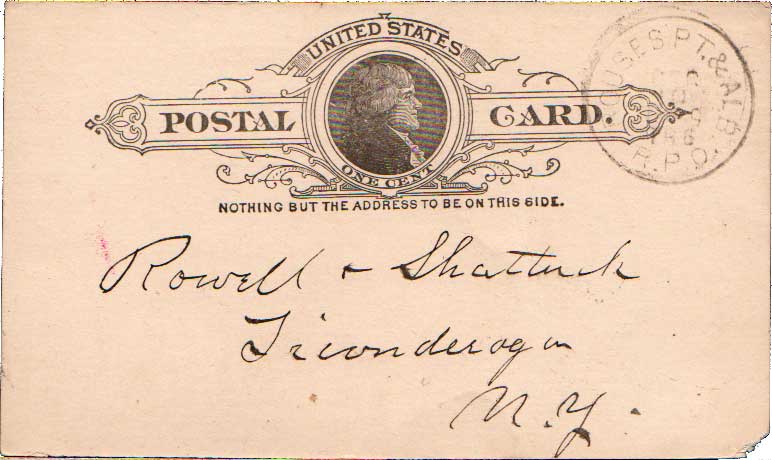 UNITED STATES
POSTAL CARD.
ONE CENT
NOTHING BUT THE ADDRESS TO BE ON THIS SIDE.
OUSES PT. & ALB.
R.P.O.
Rowell & Shattuck
Ticonderoga
N.Y.